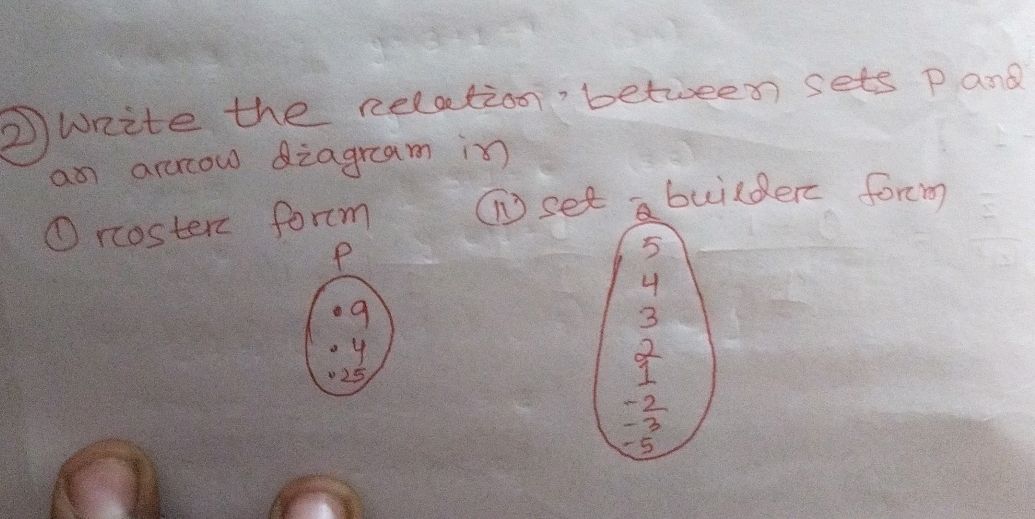 ② Write the relation, between sets P and
an arrow diagram in
① roster form ⑪ set - builder form
P 2
.9
.4
.25
5
4
3
2
1
-2
-3
-5